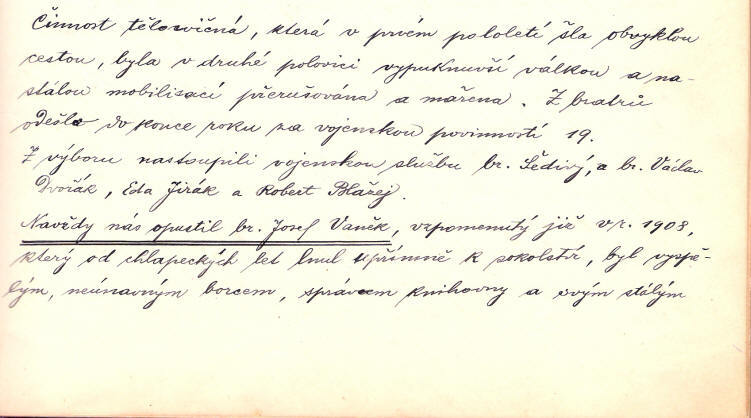 Činnost tělocvičná, která v prvém pololetí šla obvyklou
cestou, byla v druhé polovici vypuknuvší válkou a na-
stálou mobilisací přerušována a mařena. Z bratrů
odešlo do konce roku za vojenskou povinností 19.
Z výboru nastoupili vojenskou službu br. Šedivý, a br. Václav
Dvořák, Eda Jirák a Robert Blažej.
Navždy nás opustil br. Josef Vaněk, vzpomenutý již v r. 1908,
který od chlapeckých let lnul upřímně k sokolství, byl vyspě-
lým, neúnavným borcem, správcem knihovny a svým stálým